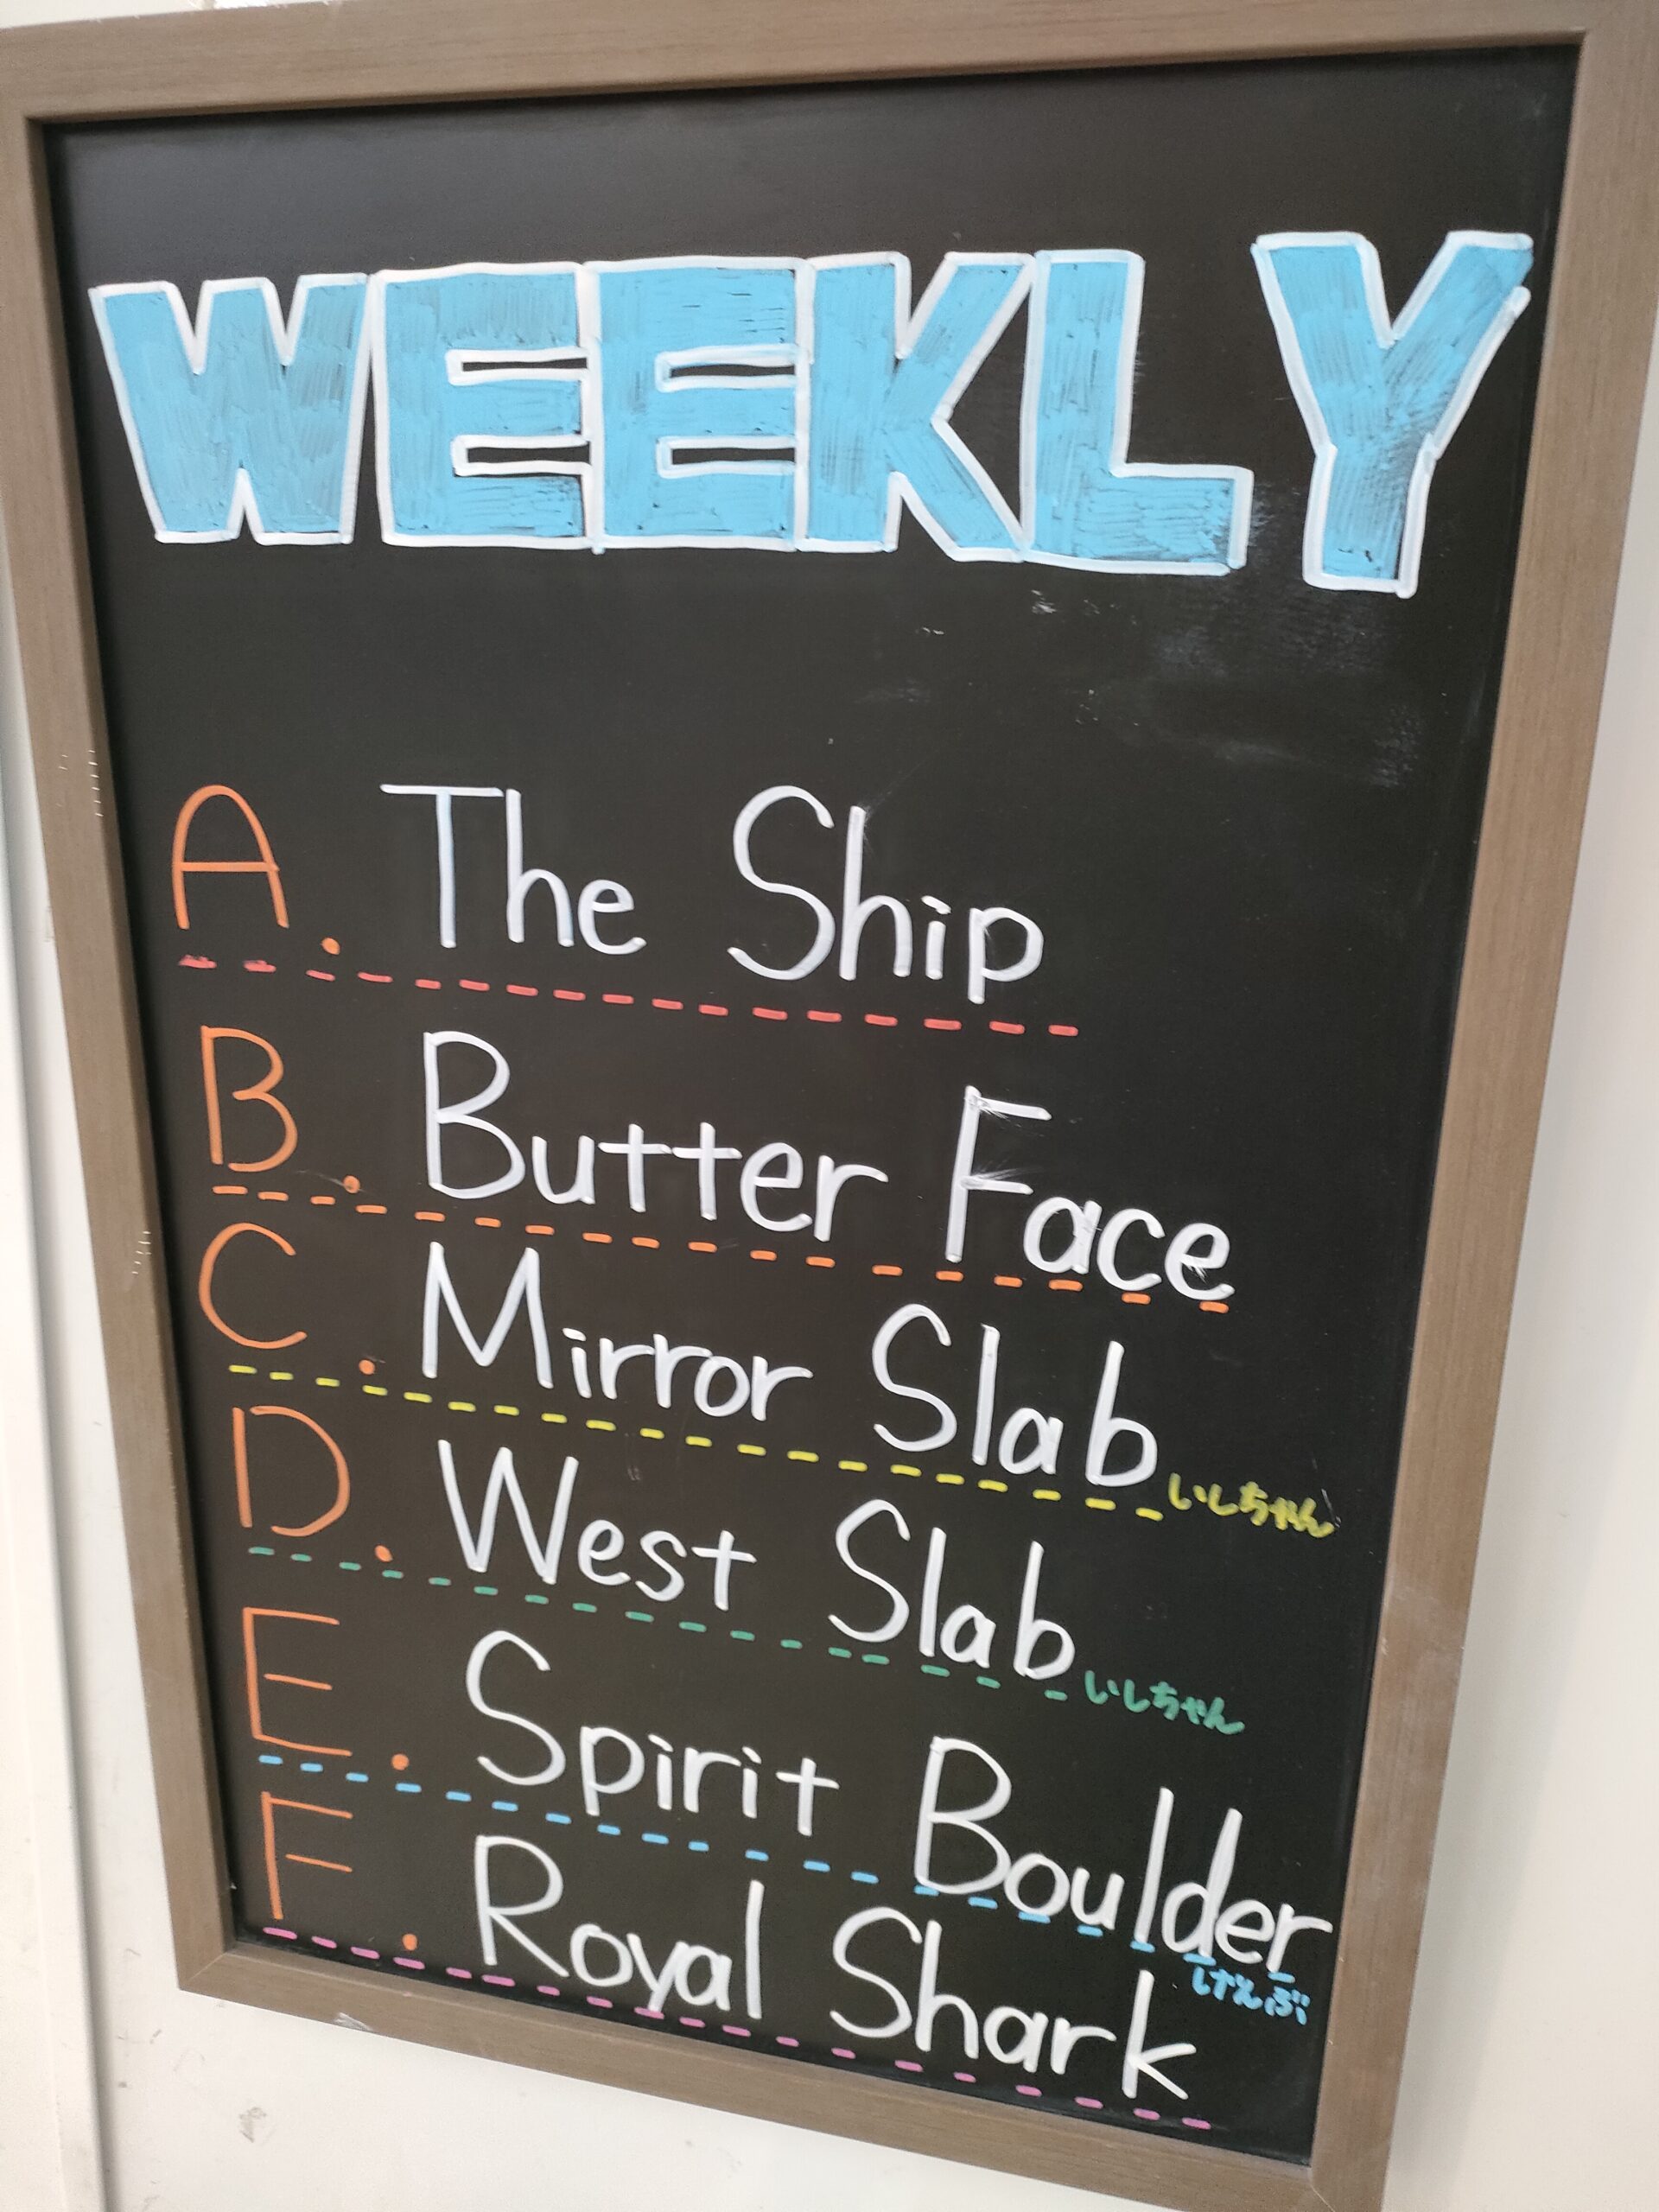 WEEKLY
A. The Ship
B. Butter Face
C. Mirror Slab いしちゃん
D. West Slab いしちゃん
E. Spirit Boulder
げんぶ
F. Royal Shark